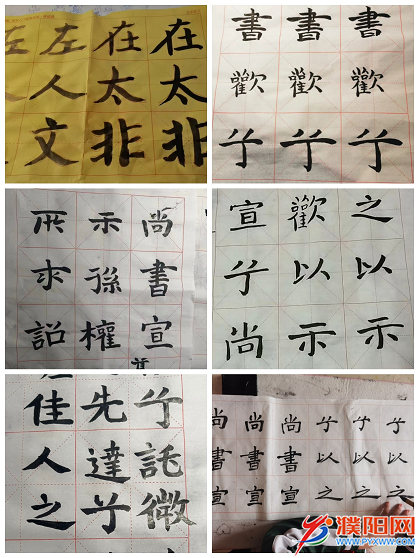 左左在在
人人太太
文非非
書書書
歡歡歡
于于于
所示尚
求孫書
詔權宣
宣歡之
于以以
尚示示
佳先于
人達託
之于微
尚尚尚于于于
書書書以以以
宣宣宣之之之
濮阳网
WWW.PYXWW.COM